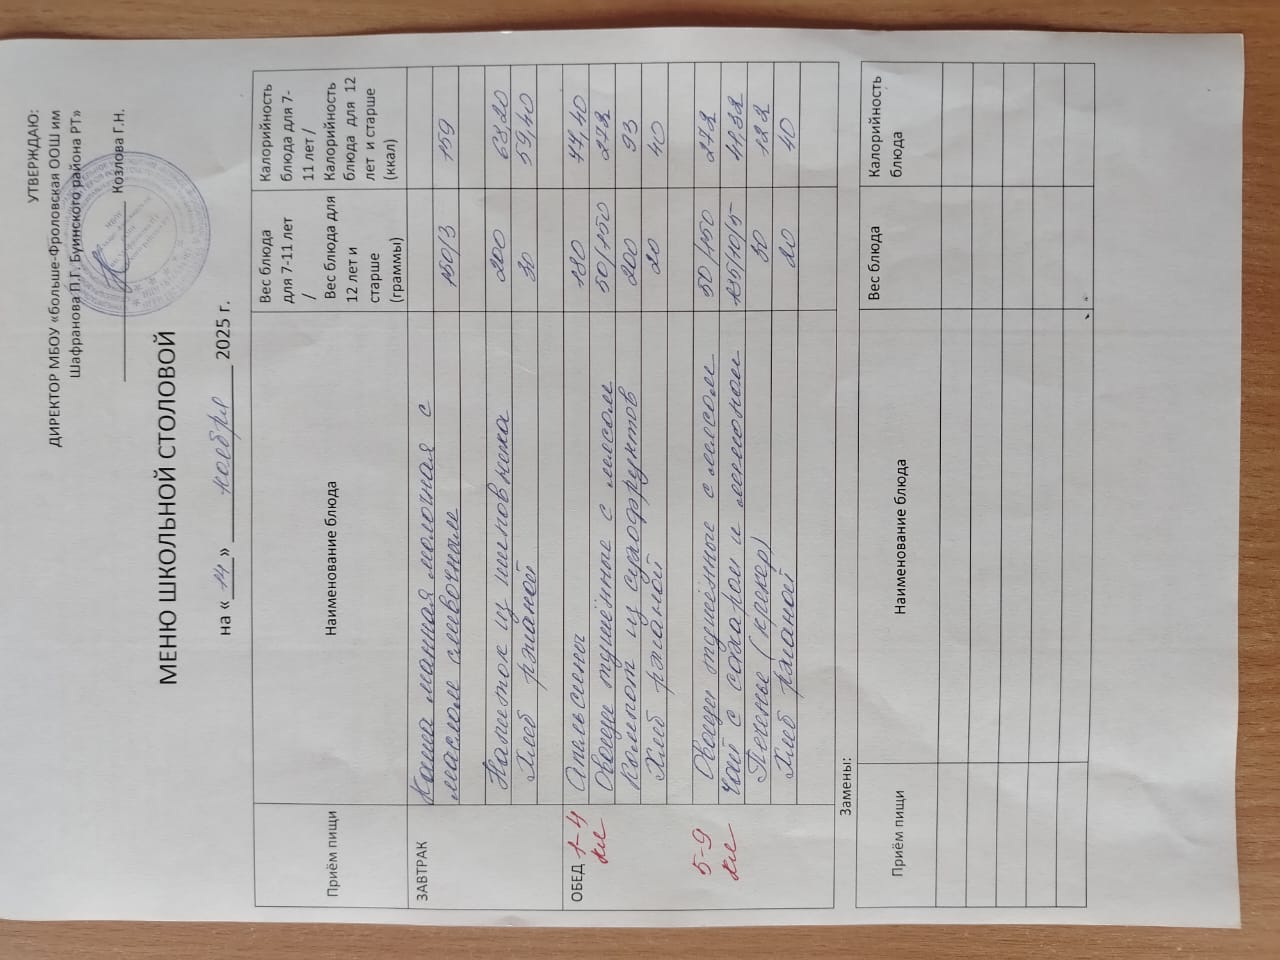 УТВЕРЖДАЮ:
ДИРЕКТОР МБОУ «больше-Фроловская ООШ им
Шафранова П.Г. Буинского района РТ»
Козлова Г.Н.
МЕНЮ ШКОЛЬНОЙ СТОЛОВОЙ
на « 14 » ноября 2025 г.
Приём пищи Наименование блюда Вес блюда для 7-11 лет / Вес блюда для 12 лет и старше (граммы) Калорийность блюда для 7-11 лет / Калорийность блюда для 12 лет и старше (ккал)
ЗАВТРАК Каша манная молочная с
маслом сливочным 150/3 159
Напиток из шиповника 200 63,20
Хлеб ржаной 30 59,40
ОБЕД 1-4 кл Апельсины 180 77,40
Овощи тушённые с мясом 50/150 272
Компот из сухофруктов 200 93
Хлеб ржаной 20 40
5-9 кл Овощи тушённые с мясом 50/150 272
Чай с сахаром и лимоном
Печенье (крекер)
Хлеб ржаной 20 40
Замены:
Приём пищи Наименование блюда Вес блюда Калорийность блюда